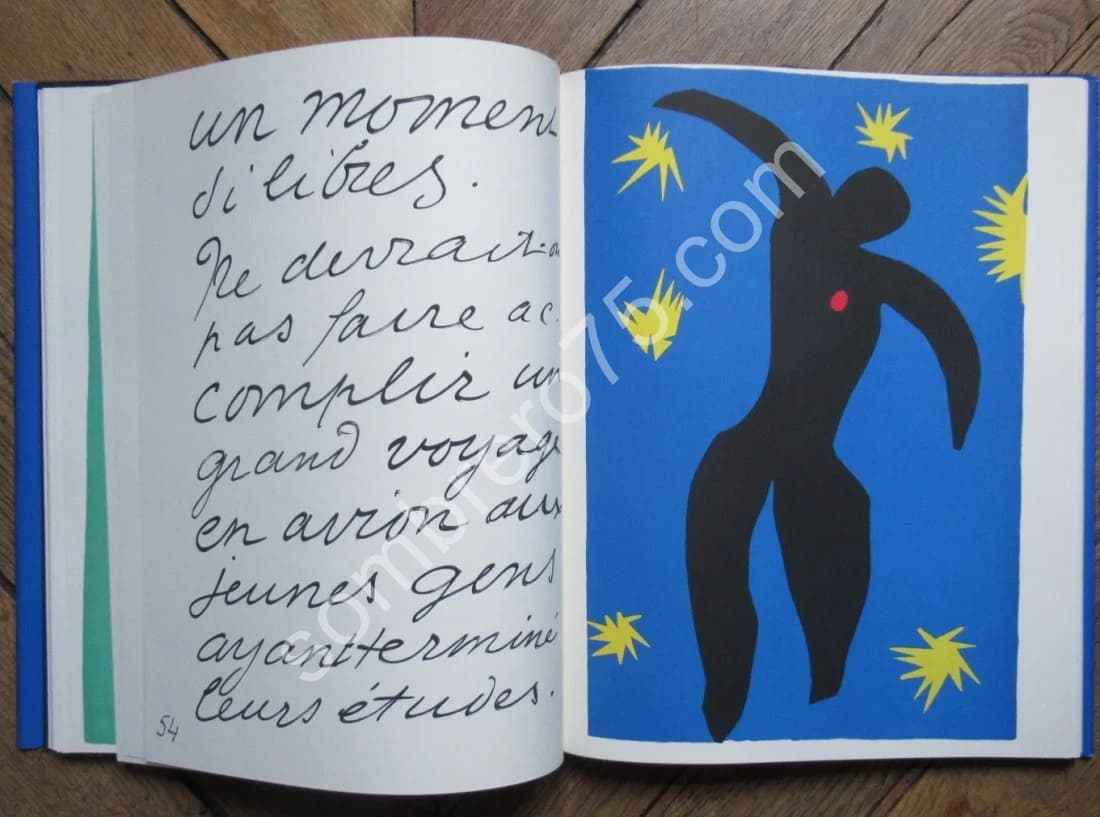 un moment
si libres.
Ne devrait-on
pas faire ac-
complir un
grand voyage
en avion aux
jeunes gens
ayant terminé
leurs études.
54
sombrero75.com